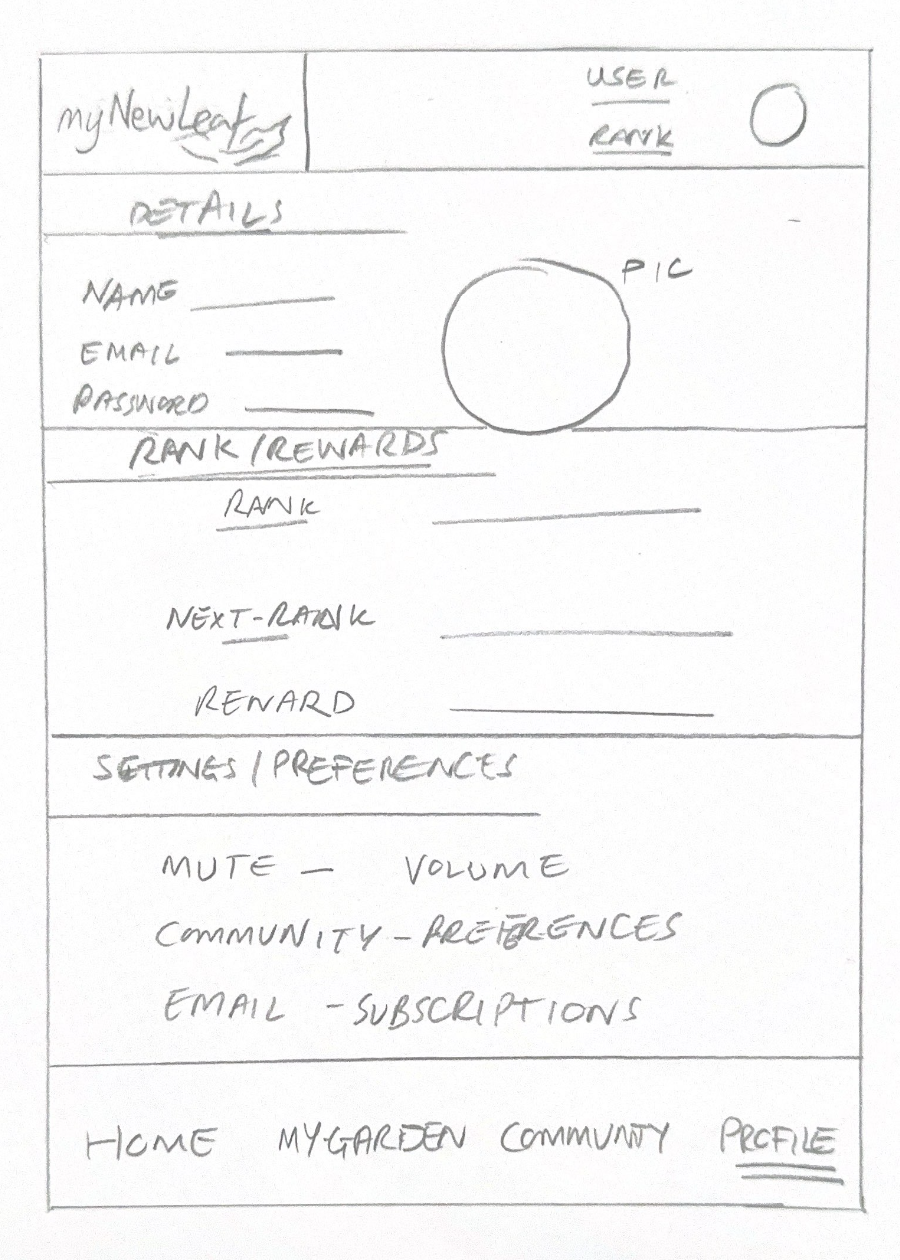 myNewLeaf
USER
RANK
DETAILS
PIC
NAME
EMAIL
PASSWORD
RANK/REWARDS
RANK
NEXT-RANK
REWARD
SETTINGS/PREFERENCES
MUTE - VOLUME
COMMUNITY - PREFERENCES
EMAIL - SUBSCRIPTIONS
HOME MYGARDEN COMMUNITY PROFILE